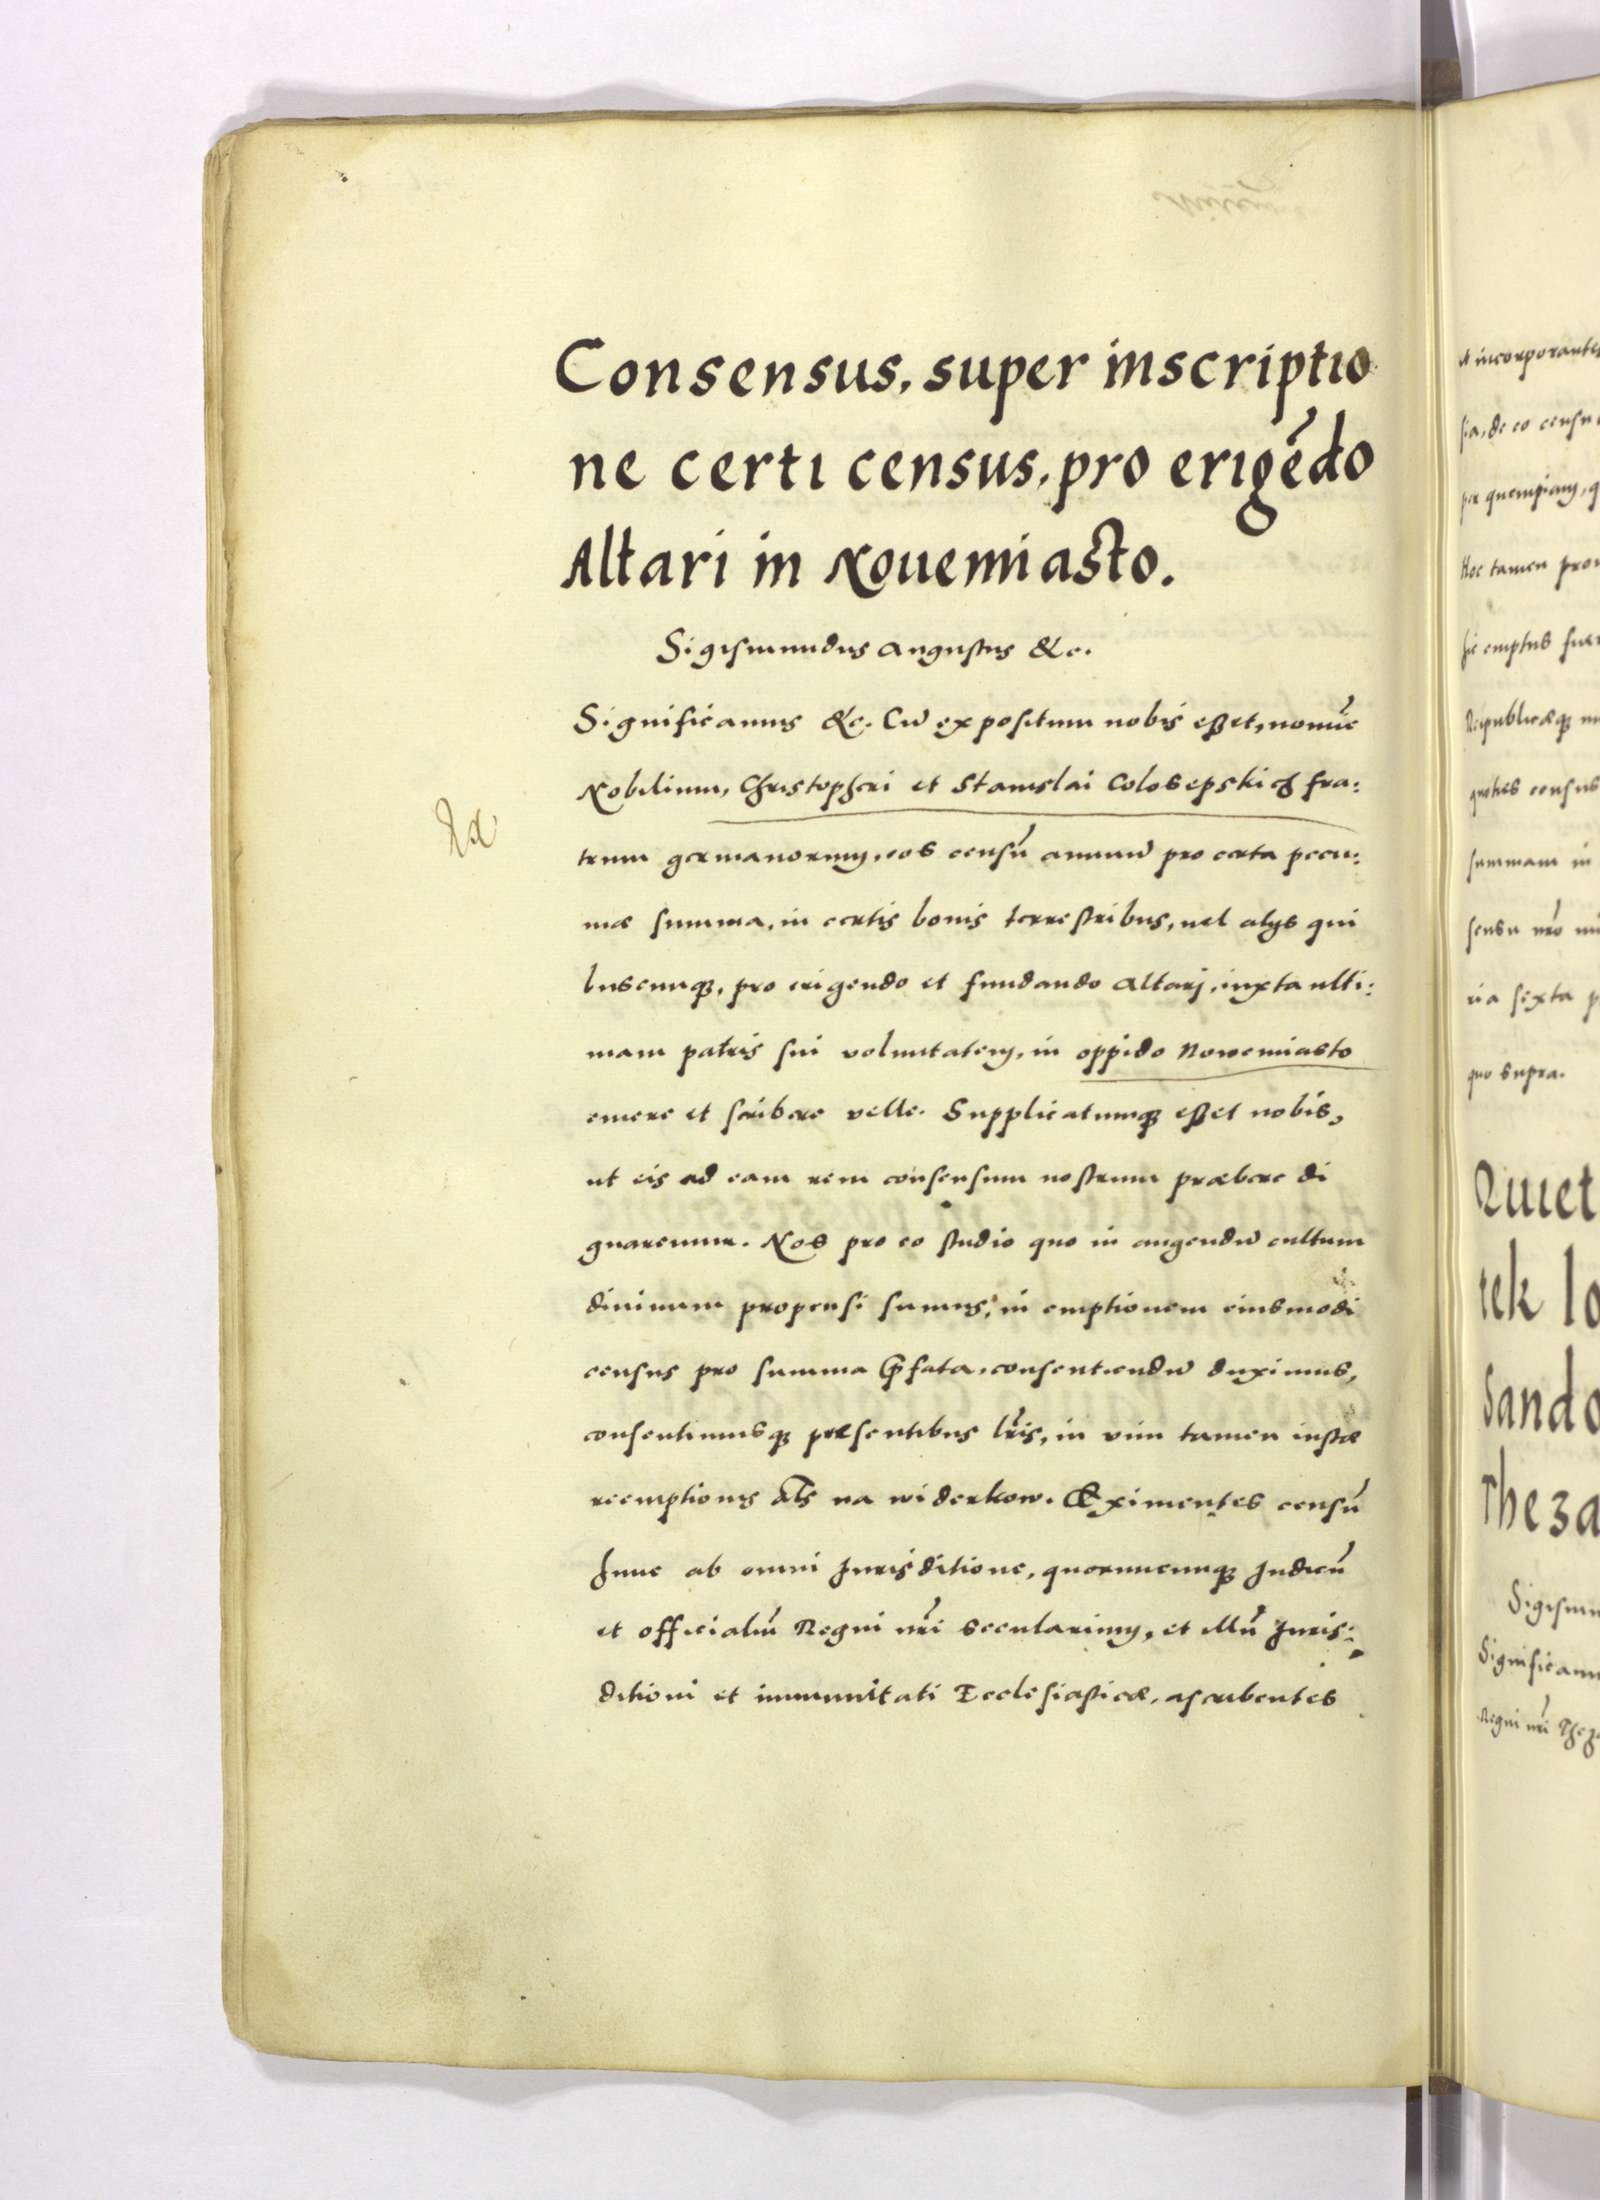 Consensus, super inscriptio
ne certi census, pro erigēdo
Altari in Nouemiasto.
Sigismundus Augustus &c.
Significamus &c. Cū expositum nobis esset, nomīe
Nobilium, Christopheri et Stanislai Colosepskich fra:
trum germanorum, eos censū annuū pro certa pecu:
niæ summa, in certis bonis terrestribus, uel alys qui
buscunqȝ, pro erigendo et fundando altari, iuxta ulti:
mam patris sui voluntatem, in oppido Nowemiasto
emere et scribere velle. Supplicatumqȝ esset nobis,
ut eis ad eam rem consensum nostrum præbere di
gnaremur. Nos pro eo studio quo in augendū cultum
diuinum propensi sumus, in emptionem eiusmodi
census pro summa p̄fata, consentiendū duximus,
consentimusqȝ præsentibus lr̄is, in vim tamen iustæ
reemptionis al̄s na widerkow. Eximentes censū
hunc ab omni Jurisditione, quorumcunqȝ Judicū
et officialiū Regni nr̄i secularium, et illū Juris:
ditioni et immunitati Ecclesiasticæ, ascribentes
et incorporantes
sia, de eo censu
per quempiam, q
Hoc tamen prou
sic emptus fuer
Reipublicæqȝ
quoties census
summam in
sensu nr̄o
ria sexta p
quo supra.
Quiet
tek lo
Sando
Theza
Sigism
Significam
Regni nr̄i Thez